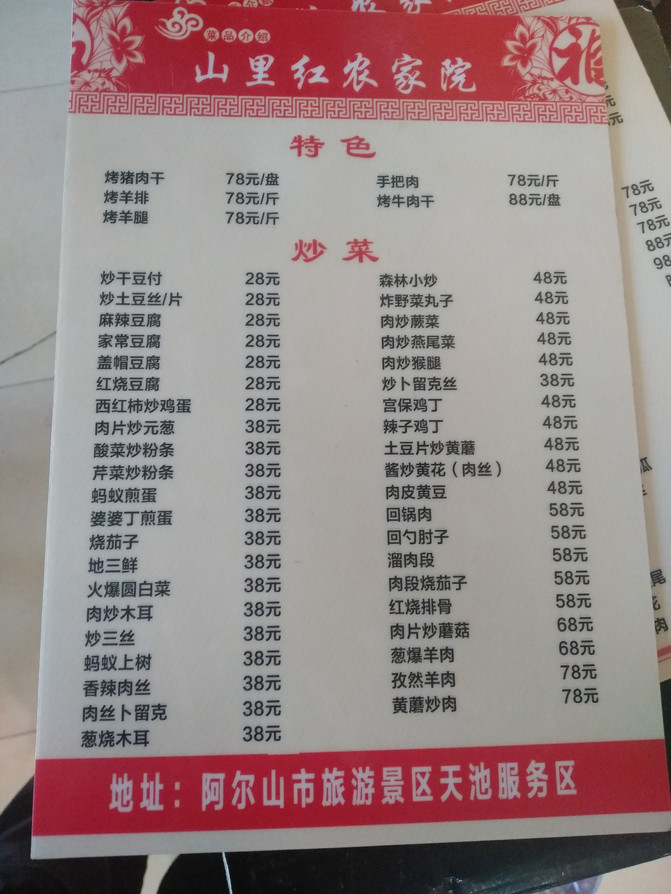 菜品介绍
山里红农家院
特色
烤猪肉干 78元/盘 手把肉 78元/斤
烤羊排 78元/斤 烤牛肉干 88元/盘
烤羊腿 78元/斤
炒菜
炒干豆付 28元 森林小炒 48元
炒土豆丝/片 28元 炸野菜丸子 48元
麻辣豆腐 28元 肉炒蕨菜 48元
家常豆腐 28元 肉炒燕尾菜 48元
盖帽豆腐 28元 肉炒猴腿 48元
红烧豆腐 28元 炒卜留克丝 38元
西红柿炒鸡蛋 28元 宫保鸡丁 48元
肉片炒元葱 38元 辣子鸡丁 48元
酸菜炒粉条 38元 土豆片炒黄蘑 48元
芹菜炒粉条 38元 酱炒黄花（肉丝） 48元
蚂蚁煎蛋 38元 肉皮黄豆 48元
婆婆丁煎蛋 38元 回锅肉 58元
烧茄子 38元 回勺肘子 58元
地三鲜 38元 溜肉段 58元
火爆圆白菜 38元 肉段烧茄子 58元
肉炒木耳 38元 红烧排骨 58元
炒三丝 38元 肉片炒蘑菇 68元
蚂蚁上树 38元 葱爆羊肉 68元
香辣肉丝 38元 孜然羊肉 78元
肉丝卜留克 38元 黄蘑炒肉 78元
葱烧木耳 38元
地址：阿尔山市旅游景区天池服务区
78元
78元
78元
88元